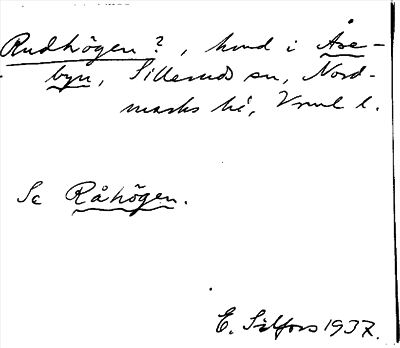 Rudhögen?, hmd i Åse-
byn, Silleruds sn, Nord-
marks hd, Vrml l.
Se Råhögen.
E. Silfors 1937.